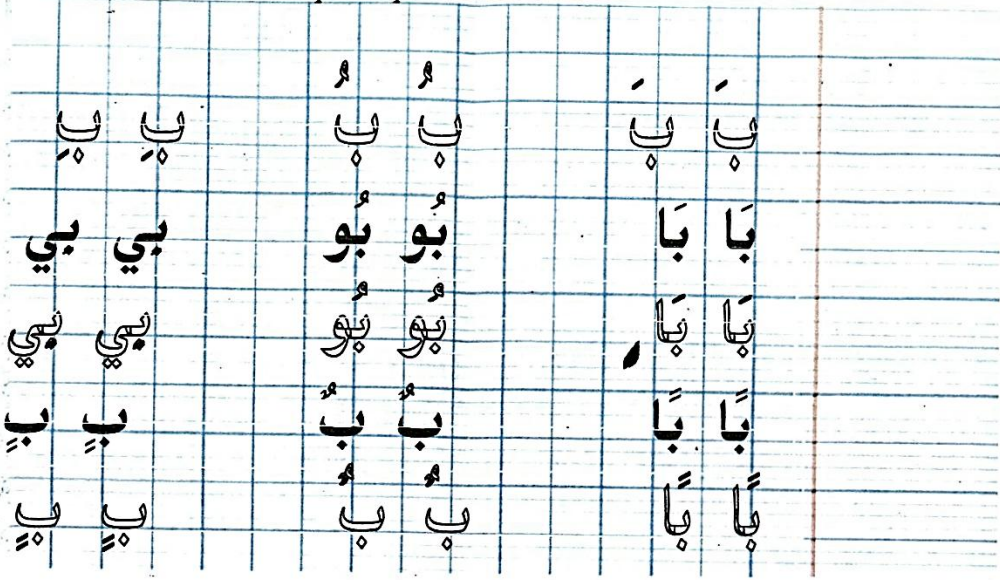 بَ بَ بُ بُ بِ بِ
بَا بَا بُو بُو بِي بِي
بَا بَا بُو بُو بِي بِي
بًا بًا بٌ بٌ بٍ بٍ
بًا بًا بٌ بٌ بٍ بٍ